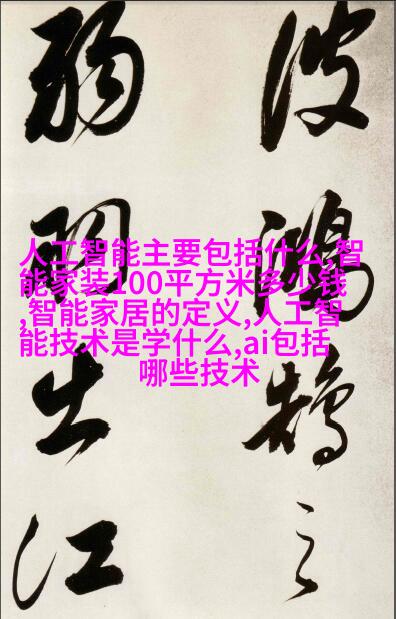 波鴻鵠之
弱羽出江
人工智能主要包括什么,智
能家装100平方米多少钱
,智能家居的定义,人工智
能技术是学什么,ai包括
哪些技术